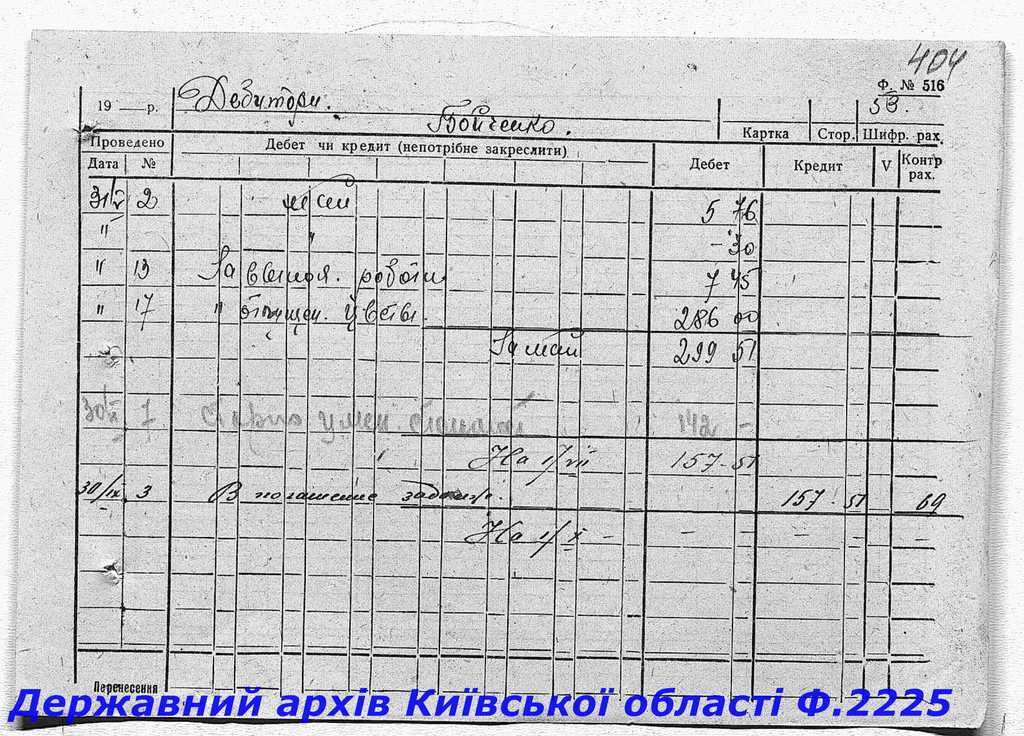 404
Ф. № 516
19 — р. Дебитори. 53.
Бойченко.
Картка Стор. Шифр. рах.
Проведено Дебет чи кредит (непотрібне закреслити) Дебет Кредит V Контр рах.
Дата №
31/V 2 5 76
" " - 30
" 13 За роботи 7 45
" 17 " 286 00
За май 299 51
30 1 142 -
На 1/VII 157 - 51
30/IX 3 В погашение задолж. 157 - 51 69
На 1/X - - - - - -
Перенесення
Державний архів Київської області Ф.2225